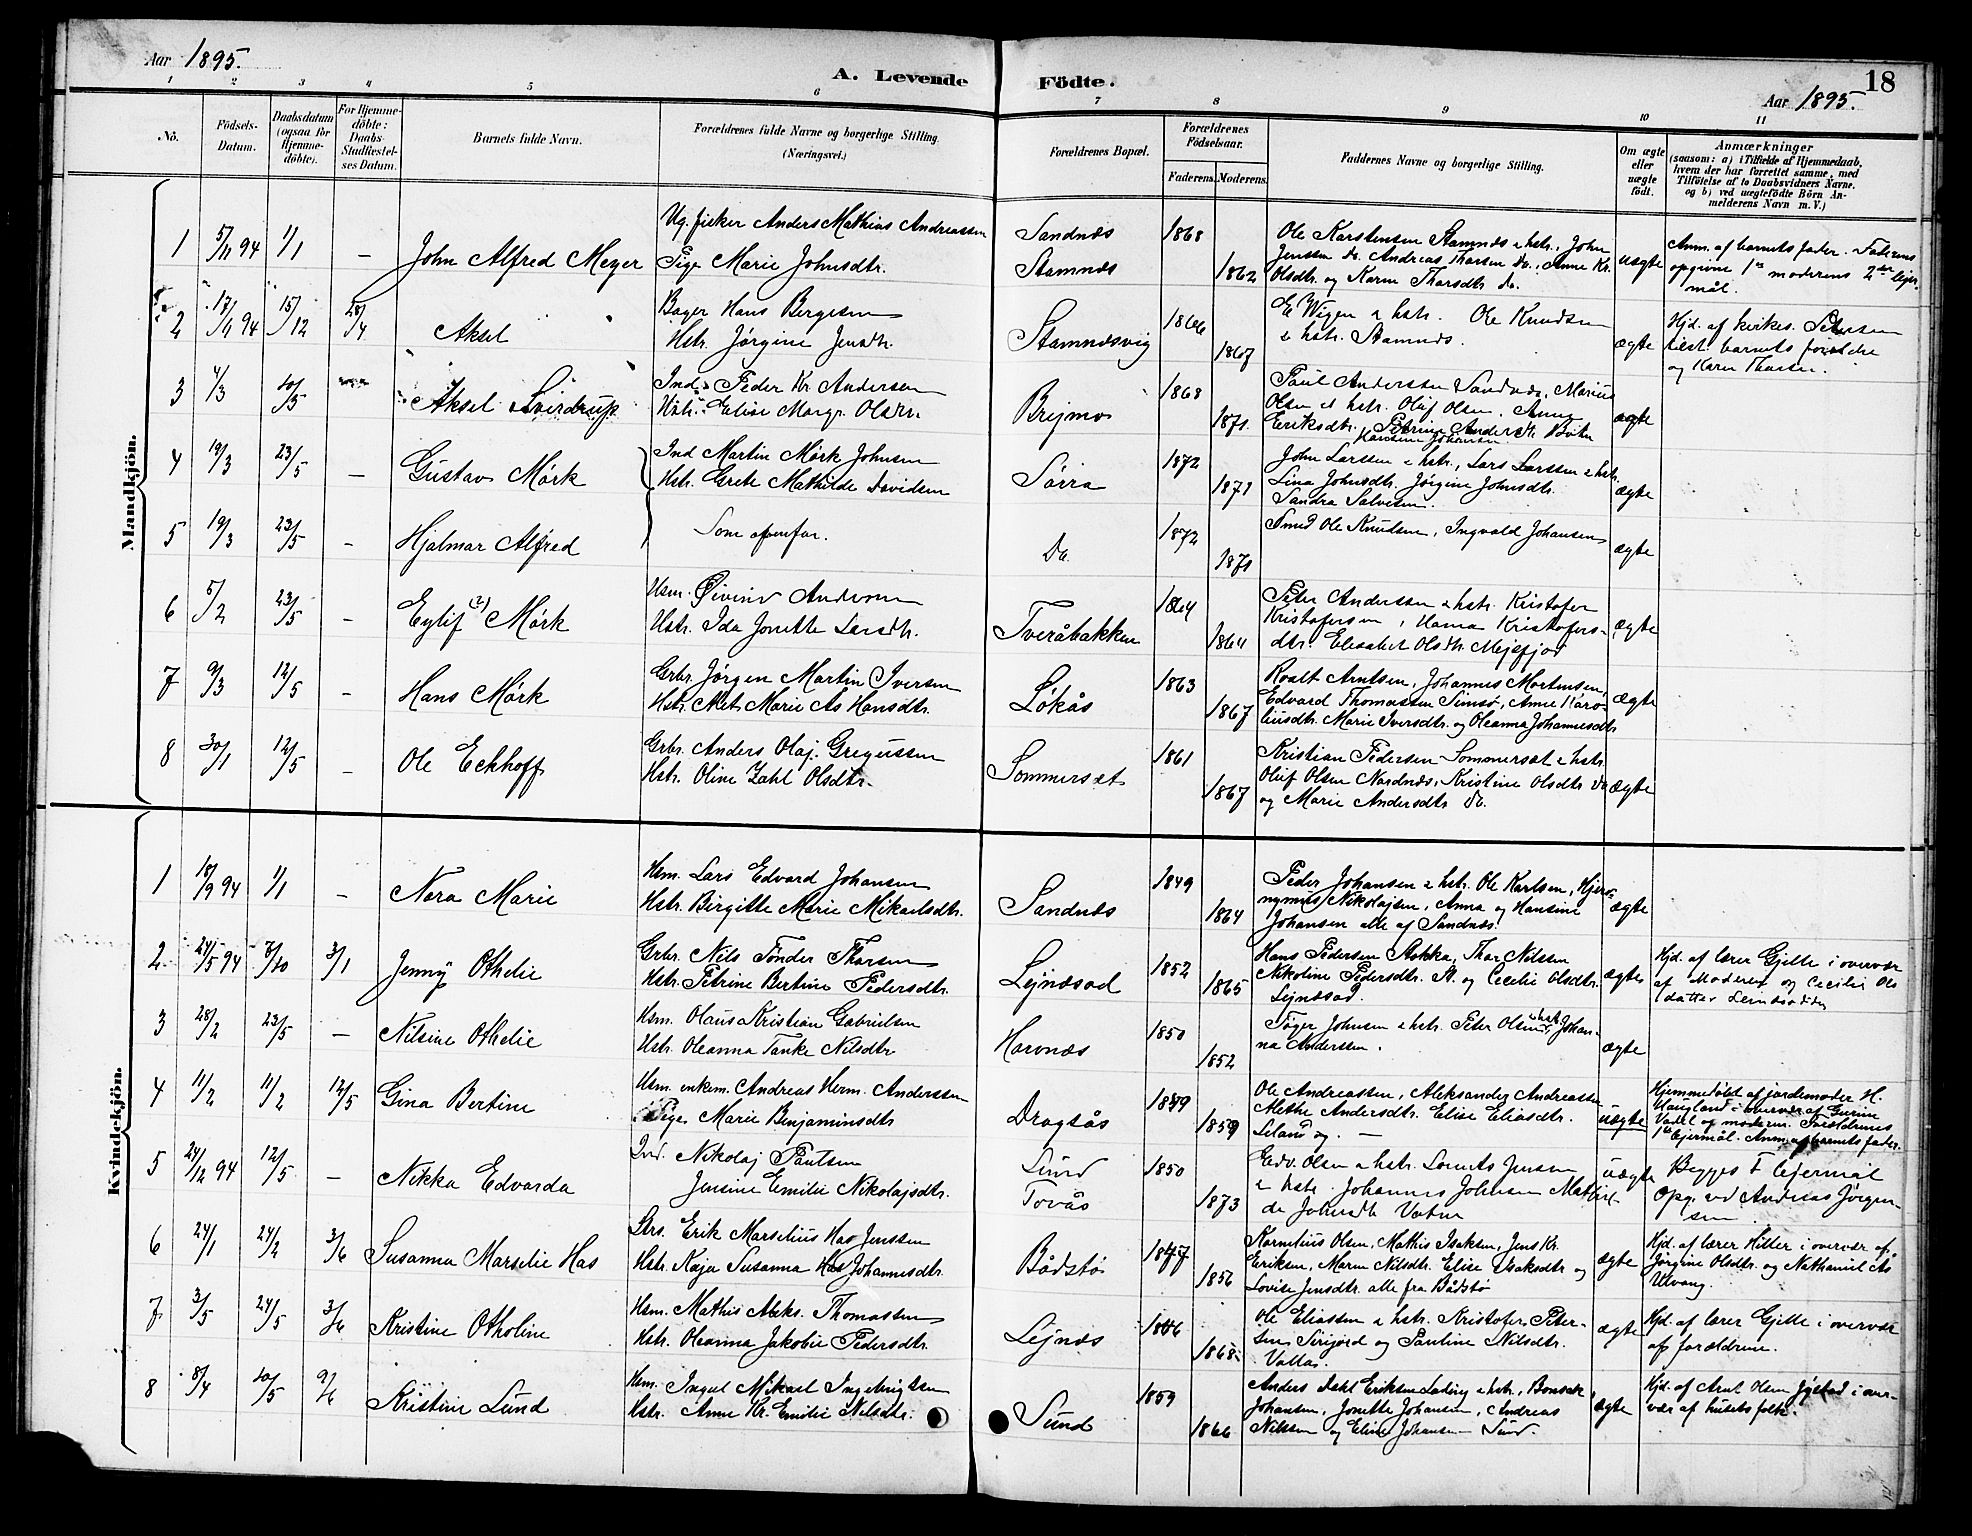 Aar 1895.
A. Levende Födte.
18
Aar 1895.
1 2 3 4 5 6 7 8 9 10 11
No.
Födsels-Datum.
Daabsdatum (ogsaa for Hjemme-döbte).
For Hjemme-döbte: Daabs-Stadfæstel-ses Datum.
Barnets fulde Navn.
Forældrenes fulde Navne og borgerlige Stilling.
(Næringsvei.)
Forældrenes Bopæl.
Forældrenes Födselsaar.
Faderens. Moderens.
Faddernes Navne og borgerlige Stilling.
Om ægte eller uægte födt.
Anmærkninger
(saasom: a) i Tilfælde af Hjemmedaab,
hvem der har forrettet samme, med
Tilföielse af to Daabsvidners Navne,
og b) ved uægtefödte Börn An-
melderens Navn m. V.)
Mandkjön.
1 5/11 94 1/1 — John Alfred Meyer
Ug. fisker Anders Mathias Andreassen
Pige Marie Johnsdtr.
Sandnæs
Stamnæs
1868 1862
Ole Karstensen Stamnæs & hstr., John
Jenssen do. Andreas Thorsen do., Anne Kr.
Olsdtr. og Karen Thorsdtr. do.
uægte
Anm. af barnets fader. Faderens
opgivne 1ste moderens 2det leier-
mål.
2 17/9 94 15/12 28/4 Aksel
Bager Hans Bergesen
Hstr. Jørgine Jensdtr.
Stamnæsvig
1866 1867
E. Wigen & hstr. Ole Knudsen
& hstr. Stamnæs.
ægte
Hjd. af kirkes. Petersen
tilst. barnets forældre
og Karen Thorsen.
3 4/3 20/5 Aksel Sverdrup
Ind. Peder Kr Andersen
Hstr. Elise Margr. Olsdtr.
Brejmo
1868 1871.
Paul Anderssen Sandnæs, Marius
Olsen & hstr. Oluf Olsen, Anne
Eriksdtr. Petrine Andersdtr.
Hansine Johansen
ægte
4 19/3 23/5 — Gustav Mørk
Ind Martin Mørk Johnsen
Hstr. Grete Mathilde Davidsen
Sørra
1872 1871
John Larssen & hstr., Lars Larssen & hstr.
Lina Johnsdtr. Jørgine Johnsdtr.
Sandra Salvesen.
ægte
5 19/3 23/5 — Hjalmar Alfred
Som ovenfor.
Do.
1872 1871
Smed Ole Knudsen, Ingvald Johansen
ægte
6 5/2 23/5 — Eylif (?) Mørk
Hsm. Øivind Andersen
Hstr. Ida Jonette Larsdtr.
Tveråbakken
1864 1864
Peter Anderssen & hstr. Kristofer
Kristofersen, Hanna Kristofers-
dtr. Elisabet Olsdtr. Mejefjord
ægte
7 9/3 12/5 — Hans Mørk
Grbr. Jørgen Martin Iversen
Hstr. Met Marie As Hansdtr.
Løkås
1863 1867
Roalt Arntsen, Johannes Mortensen,
Edvard Thomassen Simsø, Anne Karo-
liusdtr. Marie Iversdtr. og Oleanna Johannesdtr
ægte
8 30/1 12/5 — Ole Eckhoff
Grbr. Anders Olaj Gregussen
Hstr. Oline Zahl Olsdtr.
Sommerset
1861 1867
Kristian Pedersen Sommerset & hstr.
Oluf Olsen Nordnæs, Kristine Olsdtr do
og Marie Andersdtr do.
ægte
Kvindekjön.
1 18/9 94 1/1 — Nora Marie
Hsm. Lars Edvard Johansen
Hstr. Birgitte Marie Mikaelsdtr.
Sandnæs
1849 1864
Peder Johansen & hstr. Ole Karlsen, Hjero-
nymus Nikolajsen, Anna og Hansine
Johansen alle af Sandnæs.
ægte
2 24/5 94 7/10 3/1 Jenny Othelie
Grbr. Nils Tønder Thorsen
Hstr. Petrine Bertine Pedersdtr.
Lejndsod
1852 1865
Hans Pedersen Stokka, Thor Nilssen
Nikoline Pedersdtr. St. og Cecilie Olsdtr.
Lejndsod.
ægte
Hjd. af lærer Gjelle i overvær
af Moderen og Cecilie Ols
datter
3 28/2 23/5 — Nilsine Othelie
Hsm. Olaus Kristian Gabrielsen
Hstr. Oleanna Tanke Nilsdtr.
Horvnæs
1850 1852
Tøger Johnsen & hstr. Peter Olsen & hstr. Johan-
na Anderssen.
ægte
4 11/2 11/2 12/5 Gina Bertine
Hsm. enkem. Andreas Herm. Anderssen
Pige Marie Benjaminsdtr
Dragsås
1849 1859
Ole Andreassen, Aleksander Andreassen
Methe Andersdtr. Elise Eliasdtr.
Leland og. —
uægte
Hjemmedøbt af jordemoder H.
Haugland i overvær af Gurine
Vadel og moderen. Forældrenes
1ste lejermål. Anm. af barnets fader.
5 24/12 94 12/5 — Nikka Edvarda
Ind. Nikolaj Paulsen
Jensine Emilie Nikolajsdtr.
Sund
Tovås
1850 1873
Edv. Olsen & hstr. Lorents Jensen
& hstr. Johannes Johnsen Mathil-
de Johnsdtr Vatne
uægte
Begges F lejermål
Opg. ved Andreas Jörgen-
sen.
6 24/1 24/2 3/6 Susanna Marselie Has
Strs. Erik Marselius Has Jenssen
Hstr. Kaja Susanna Has Johannesdtr.
Bådstø
1847 1856
Kornelius Olsen, Mathis Isaksen, Jens Kr.
Eriksen, Maren Nilsdtr. Elise Isaksdtr og
Lovise Jensdtr. alle fra Bådstø
ægte
Hjd. af lærer Hiller i overvær af
Jørgine Olsdtr. og Nathaniel As
Ulvang.
7 3/5 24/5 3/6 Kristine Otholine
Hsm. Mathis Aleks. Thomassen
Hstr. Oleanna Jakobie Pedersdtr.
Lejnæs
1866 1868
Ole Eliassen & hstr. Kristofer Peter-
sen, Sirijord og Pauline Nilsdtr.
Valla.
ægte
Hjd. af lærer Gjelle i overvær
af forældrene.
8 8/4 20/5 9/6 Kristine Lund
Hsm. Ingul Mikael Ingebrigtsen
Hstr. Anne Kr. Emilie Nilsdtr.
Sund
1859 1866
Anders Dahl Eriksen & hstr., Bonsak
Johansen, Jonette Johansen, Andreas
Nilssen og Eline Johansen Sund.
ægte
Hjd. af Arnt Olsen Jøstad i over-
vær af husets folk.